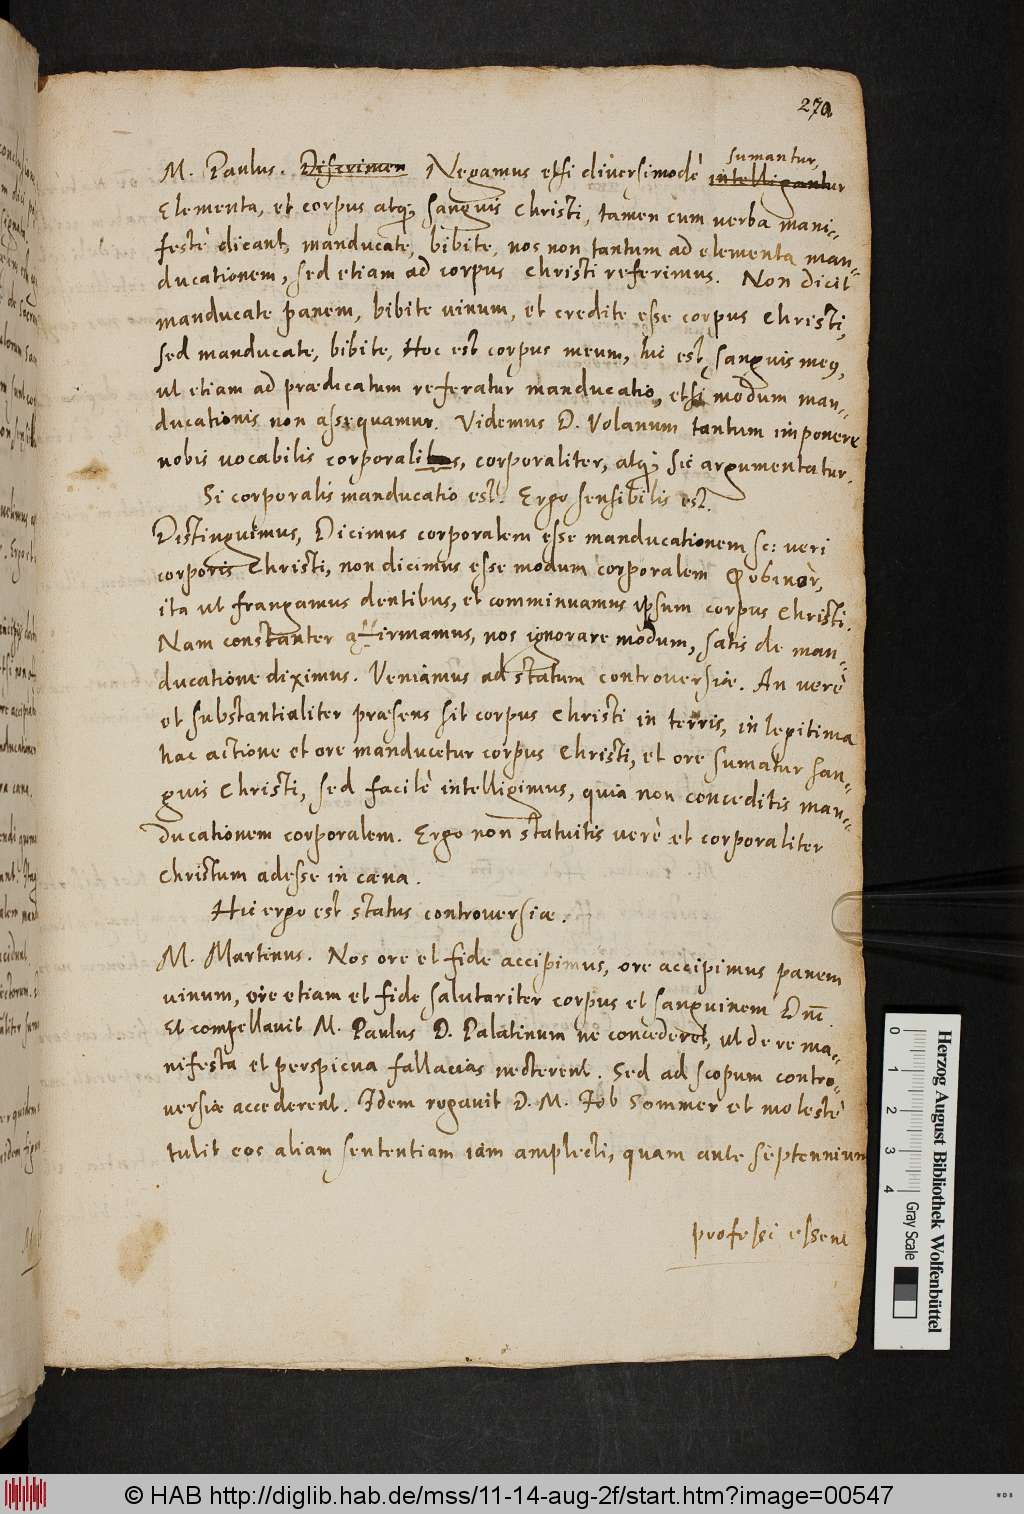 270
sumantur,
M. Paulus. Discrimen Negamus etsi diversimodè intelligantur
Elementa, et corpus atq; sanguis Christi, tamen cum verba mani-
festè dicant, manducate, bibite, nos non tantum ad elementa man-
ducationem, sed etiam ad corpus Christi referimus. Non dicit
manducate panem, bibite vinum, et credite esse corpus Christi,
sed manducate, bibite, Hoc est corpus meum, hic est sanguis meus,
ut etiam ad prædicatum referatur manducatio, etsi modum man-
ducationis non assequamur. Videmus D. Volanum tantum imponere
nobis vocabilis corporalibus, corporaliter, atq; sic argumentatur.
Si corporalis manducatio est. Ergo sensibilis est.
Distinguimus, Dicimus corporalem esse manducationem sc: veri
corporis Christi, non dicimus esse modum corporalem
ita ut frangamus dentibus, et comminuamus ipsum corpus Christi.
Nam constanter affirmamus, nos ignorare modum, satis de man-
ducatione diximus. Veniamus ad statum controversiæ. An verè
et substantialiter præsens sit corpus Christi in terris, in legitima
hac actione et ore manducetur corpus Christi, et ore sumatur san-
guis Christi, sed facilè intelligimus, quia non conceditis man-
ducationem corporalem. Ergo non statuitis verè et corporaliter
Christum adesse in cæna.
Hic ergo est status controversiæ.
M. Martinus. Nos ore et fide accipimus, ore accipimus panem
vinum, ore etiam et fide salutariter corpus et sanguinem Dni.
Et compellavit M. Paulus D. Palatinum ne concederet, ut de re ma-
nifesta et perspicua fallacias necterent. Sed ad scopum contro-
versiæ accederent. Idem rogavit D. M. Job Sommer et molestè
tulit eos aliam sententiam iam amplecti, quam ante septennium
professi essent
0 1 2 3 4
Gray Scale
Herzog August Bibliothek Wolfenbüttel
© HAB http://diglib.hab.de/mss/11-14-aug-2f/start.htm?image=00547